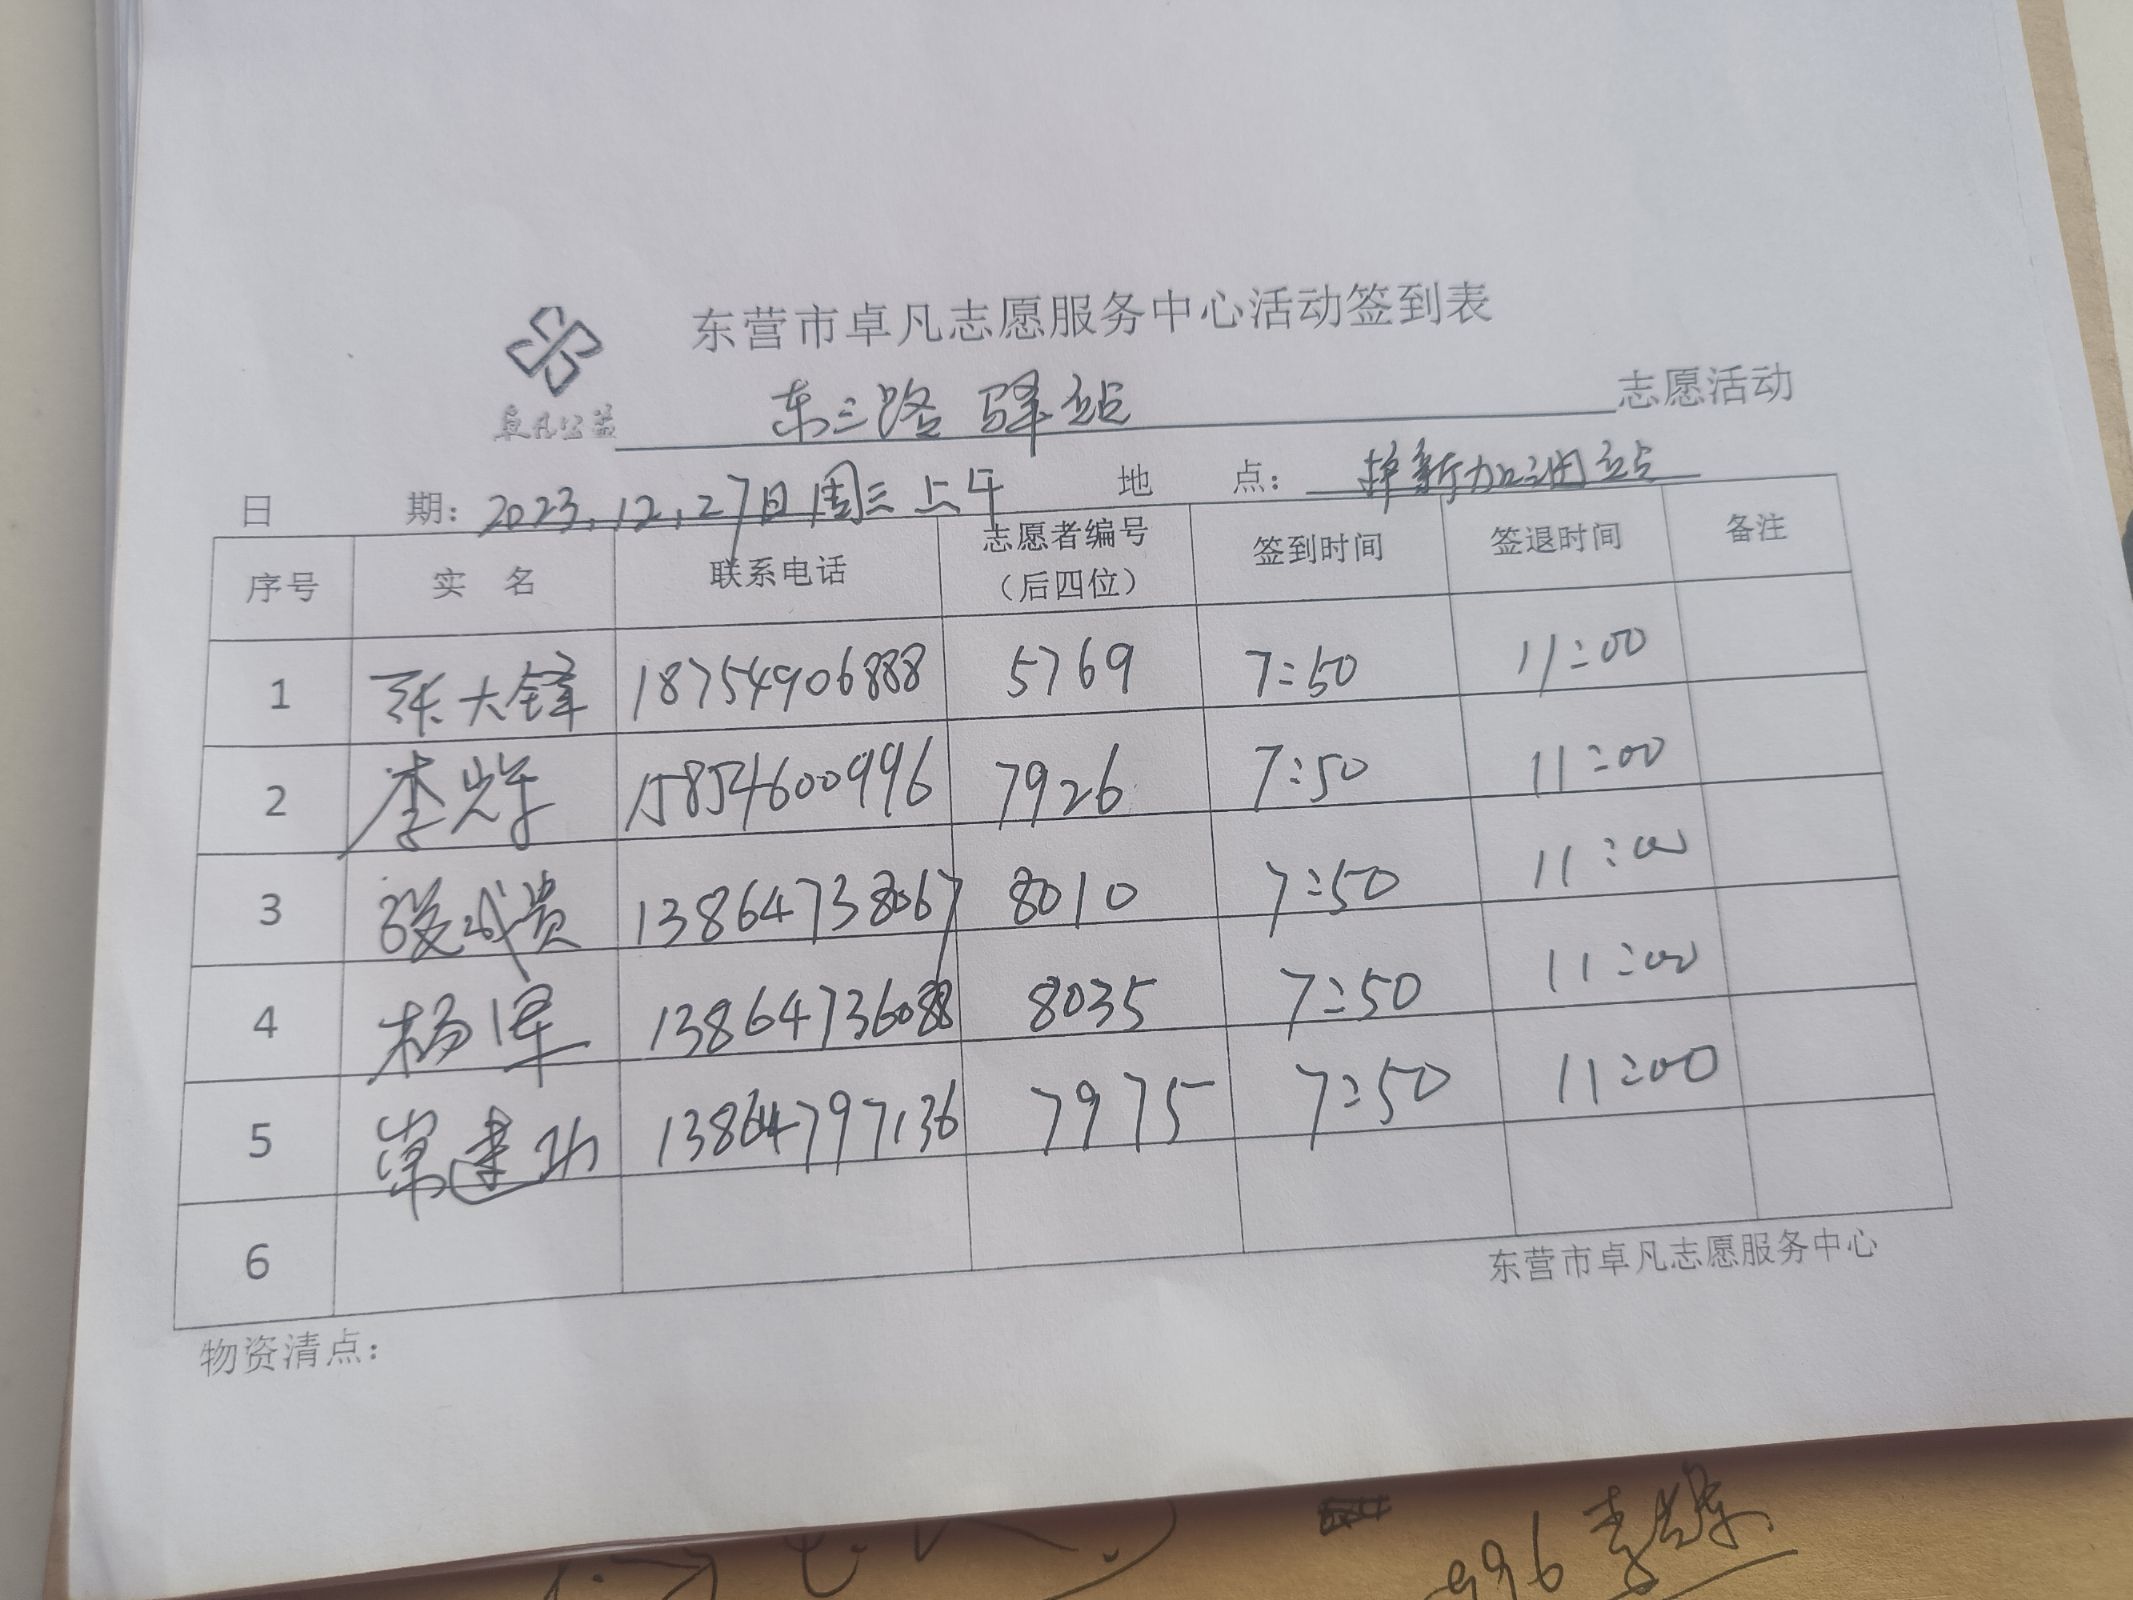 东营市卓凡志愿服务中心活动签到表
卓凡公益 东三路 驿站 志愿活动
日 期：2023.12.27日周三上午 地 点： 新加油站
序号 实 名 联系电话 志愿者编号（后四位） 签到时间 签退时间 备注
1 张大锋 18754906888 5769 7:50 11:00
2 李光军 15854600996 7926 7:50 11:00
3 成贵 13864738067 8010 7:50 11:00
4 杨军 13864736088 8035 7:50 11:00
5 常建功 13864797136 7975 7:50 11:00
6
东营市卓凡志愿服务中心
物资清点：
996 李